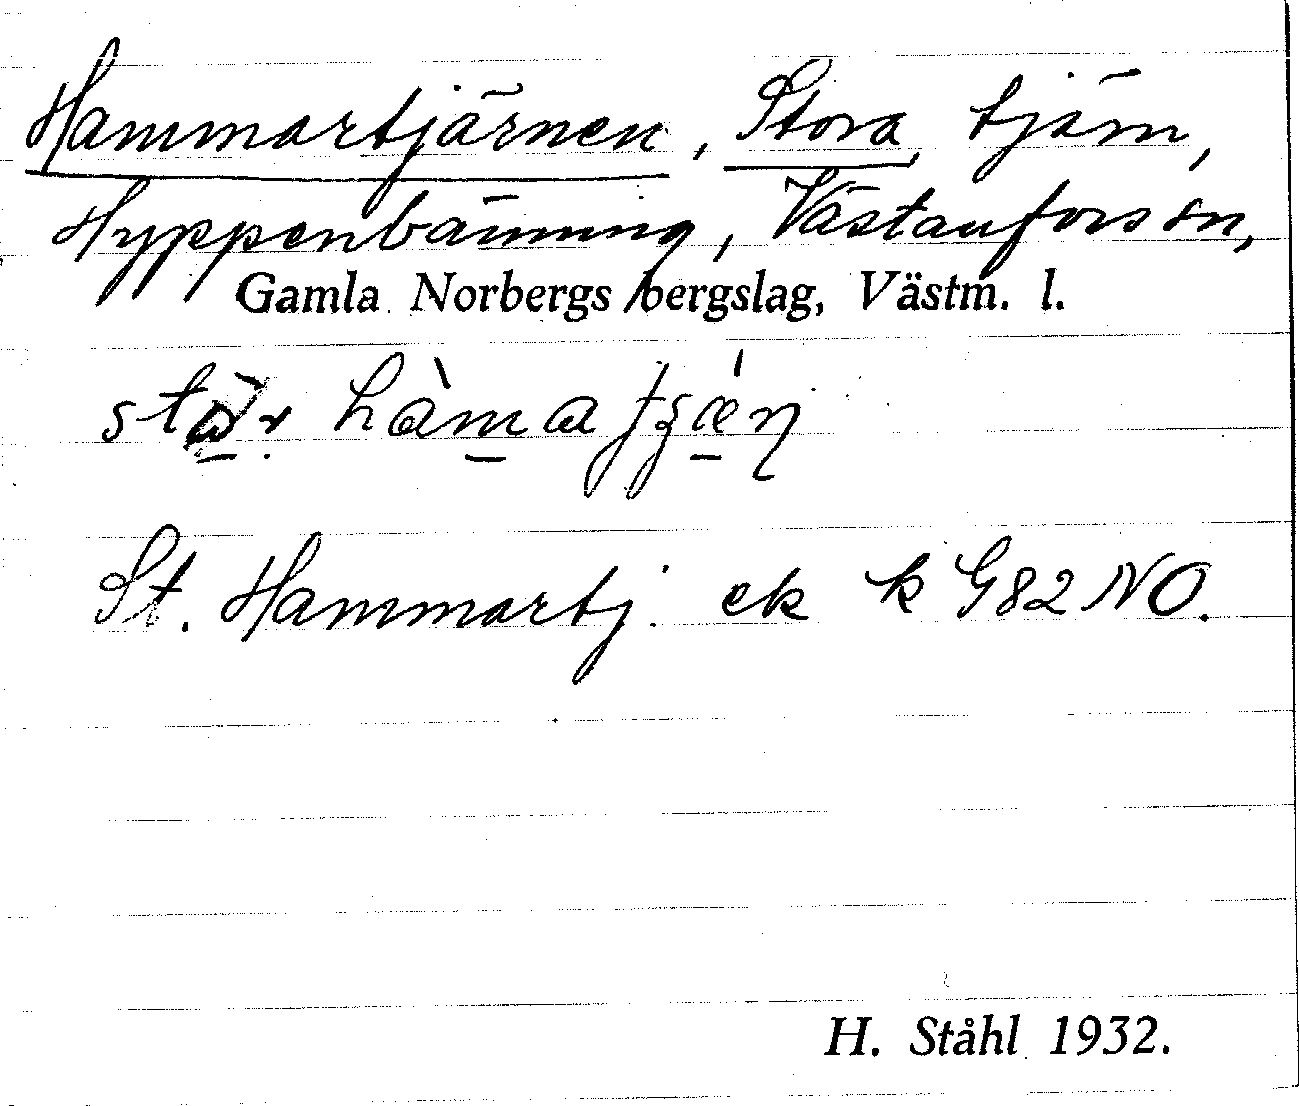 Hammartjärnen, Stora, tjärn,
Hyppenbänning, Västanfors sn,
Gamla Norbergs bergslag, Västm. l.
St. Hammartj. ek k G82 NO.
H. Ståhl 1932.